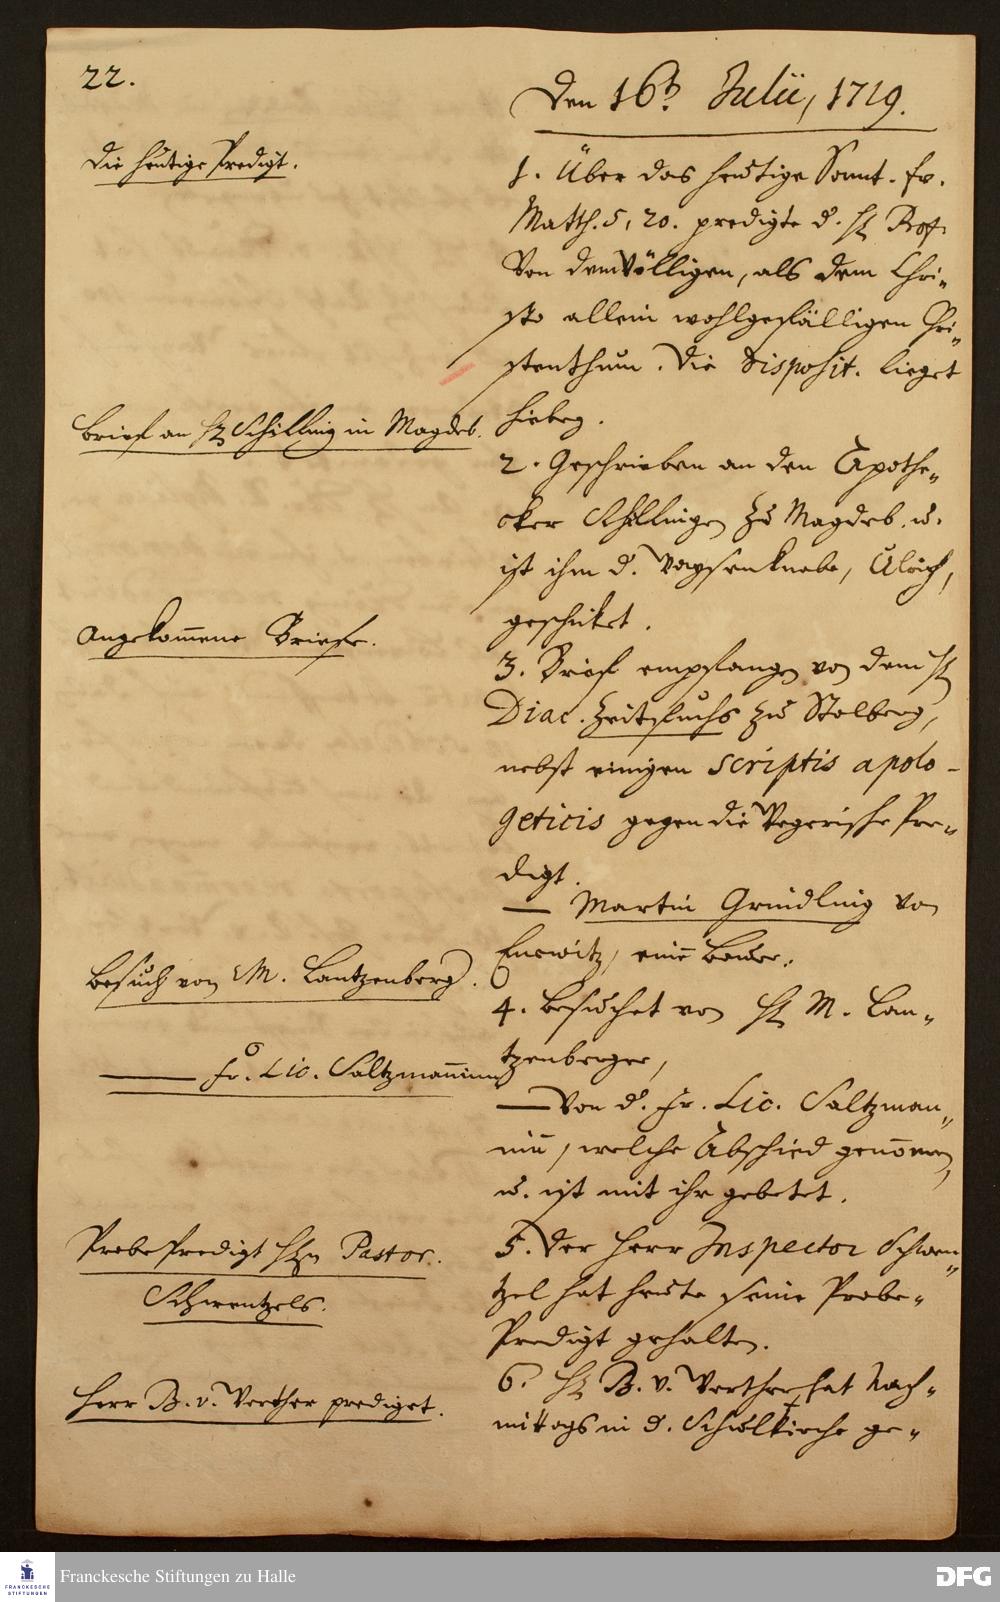 22.
Den 16t. Julii, 1719.
Die heutige Predigt.
1. Über das heutige Sonnt. Ev.
Matth. 5, 20. predigte d. H. Prof.
Von dem Völligen, als dem Chri-
sto allein wohlgefälligen Chri-
stenthum. Die Disposit. lieget
hiebey.
Brief an H. Schilling in Magdeb.
2. Geschrieben an den Apothe-
cker Schillingen zu Magdeb. u.
ist ihm d. Waysenknabe, Ulrich,
geschicket.
Angekom̄ene Briefe.
3. Brief empfangen von dem H.
Diac. Zeitfuchs zu Stolberg,
nebst einigen scriptis apolo-
geticis gegen die Wegerische Pre-
digt.
— Martin Gründling von
einē Bauer.
Besuch von M. Lantzenberg.
4. Besuchet von H. M. Lan-
tzenberger,
— Fr. Lic. Saltzmannin
— Von d. Fr. Lic. Saltzman-
nin, welche Abschied genom̄en,
u. ist mit ihr gebetet.
Probe Predigt Hrn Pastor.
Schwentzels.
5. Der Herr Inspector Schwen-
tzel hat heute seine Probe-
Predigt gehalten.
Herr B. v. Werther prediget.
6. H. B. v. Werther hat Nach-
mittags in d. Schulkirche ge-
FRANCKESCHE
STIFTUNGEN
Franckesche Stiftungen zu Halle
DFG